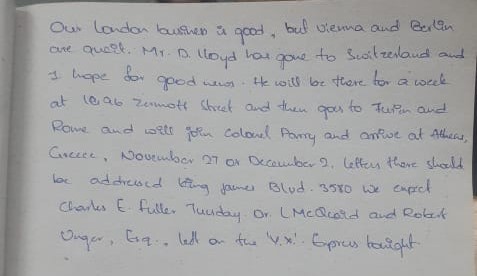 Our London business is good, but Vienna and Berlin
are quiet. Mr. D. Lloyd has gone to Switzerland and
I hope for good news. He will be there for a week
at 1896 Zermott Street and then goes to Turin and
Rome and will join Colonel Parry and arrive at Athens,
Greece, November 27 or December 2. Letters there should
be addressed King James Blvd. 3580 We expect
Charles E. Fuller Tuesday Dr. L McQuaid and Robert
Unger, Esq., left on the 'V.X.' Express tonight.